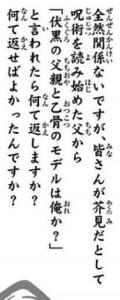 全然関係ないですが、皆さんが芥見だとして
呪術を読み始めた父から
「伏黒の父親と乙骨、モデルは俺か？」
と言われたら何て返しますか？
何て返せばよかったんですか？